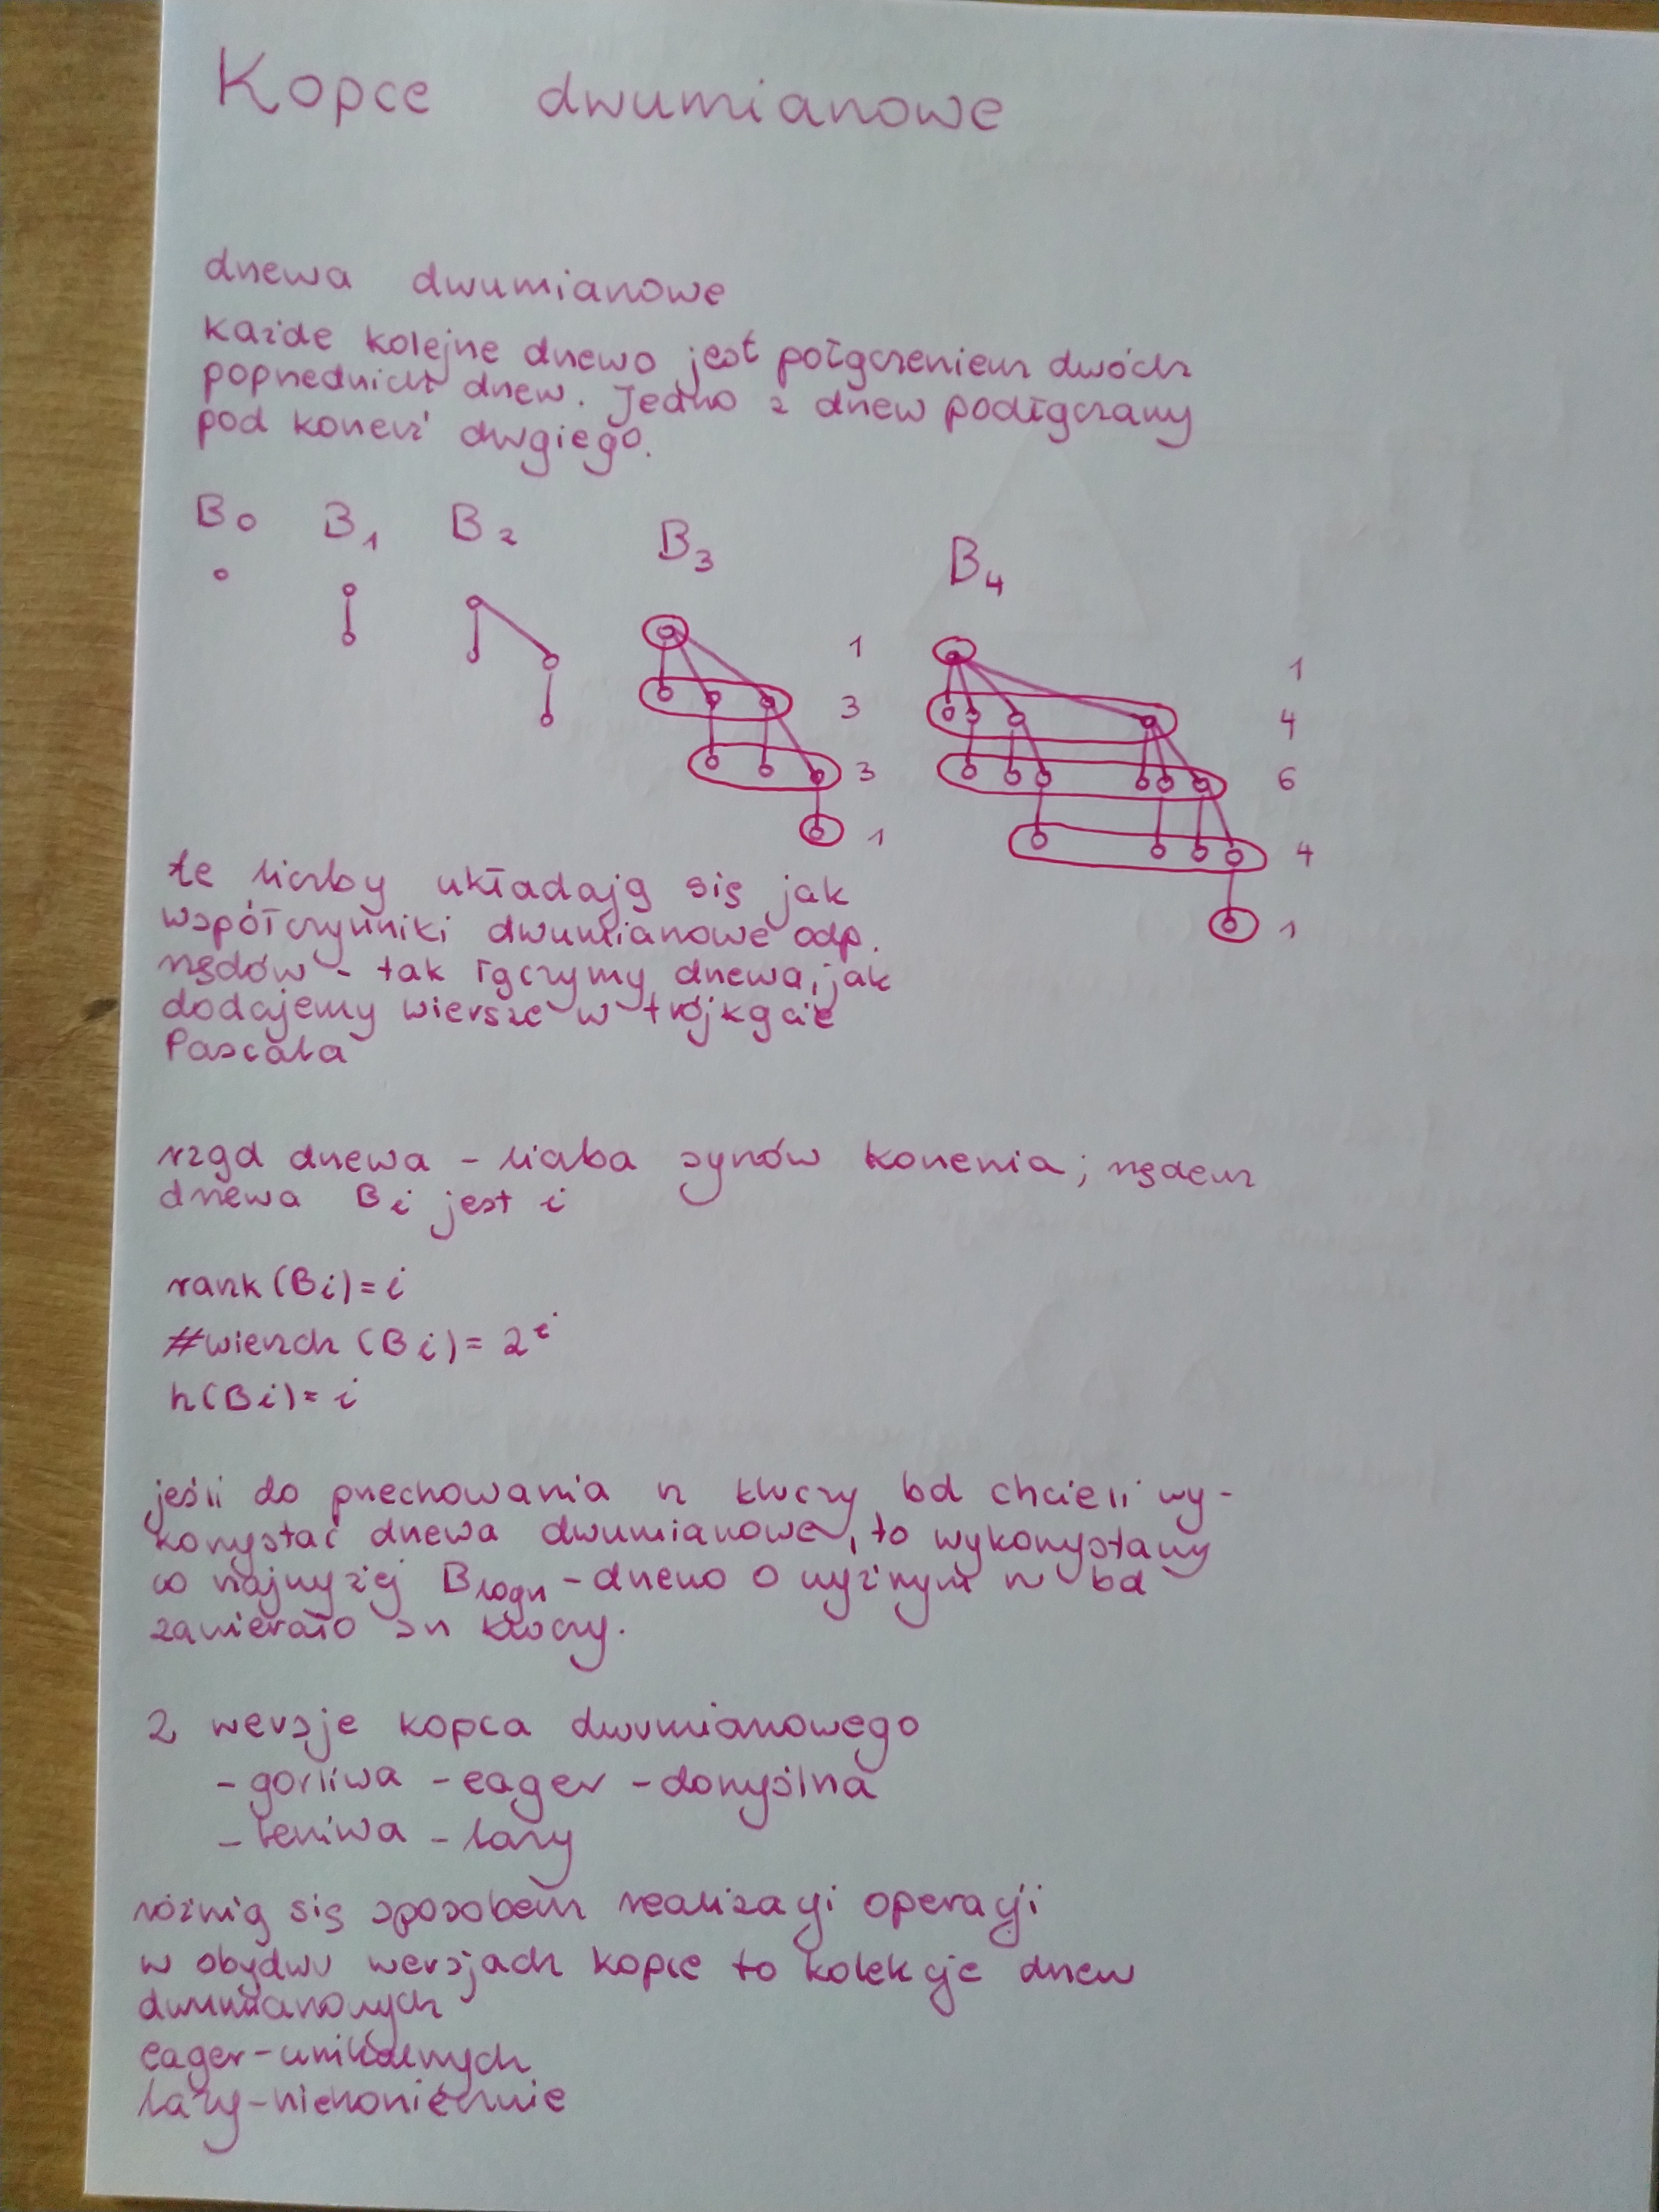 Kopce dwumianowe
drzewa dwumianowe
każde kolejne drzewo jest połączeniem dwóch
poprzednich drzew. Jedno z drzew podłączamy
pod korzeń drugiego.
B0 B1 B2 B3 B4
1 1
3 4
3 6
1 4
1
te liczby układają się jak
współczynniki dwumianowe odp.
rzędów - tak łączymy drzewa, jak
dodajemy wiersze w trójkącie
Pascala
rząd drzewa - liczba synów korzenia; rzędem
drzewa Bi jest i
rank(Bi) = i
#wierzch(Bi) = 2^i
h(Bi) = i
jeśli do przechowania n kluczy bd chcieli wy-
korzystać drzewa dwumianowe, to wykorzystamy
co najwyżej Blogn - drzewo o wyższym n bd
zawierało >n kluczy.
2 wersje kopca dwumianowego
- gorliwa - eager - domyślna
- leniwa - lazy
różnią się sposobem realizacji operacji
w obydwu wersjach kopce to kolekcje drzew
dwumianowych
eager - unikalnych
lazy - niekoniecznie